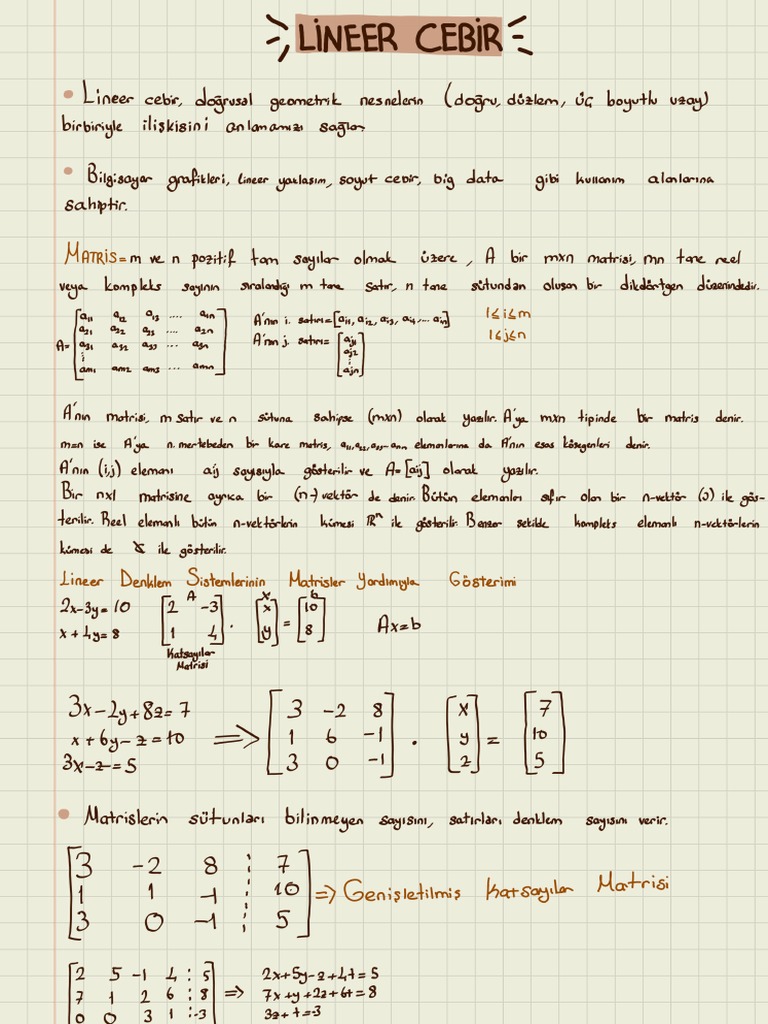 LİNEER CEBİR
• Lineer cebir, doğrusal geometrik nesnelerin (doğru, düzlem, üç boyutlu uzay)
birbiriyle ilişkisini anlamamızı sağlar.
• Bilgisayar grafikleri, lineer yaklaşım, soyut cebir, big data gibi kullanım alanlarına
sahiptir.
MATRİS= m ve n pozitif tam sayılar olmak üzere, A bir mxn matrisi, mn tane reel
veya kompleks sayının sıralandığı m tane satır, n tane sütundan oluşan bir dikdörtgen düzenindedir.
A= [a11 a12 a13 .... a1n
a21 a22 a23 .... a2n
a31 a32 a33 ... a3n
⋮
am1 am2 am3 ... amn]
A'nın i. satırı=[ai1, ai2, ai3, ai4,... ain] 1≤i≤m
A'nın j. satırı= [aj1 aj2 ⋮ ajn] 1≤j≤n
A'nın matrisi, m satır ve n sütuna sahipse (mxn) olarak yazılır. A'ya mxn tipinde bir matris denir.
m=n ise A'ya n. mertebeden bir kare matris, a11,a22,a33-ann elemanlarına da A'nın esas köşegenleri denir.
A'nın (i,j) elemanı aij sayısıyla gösterilir ve A=[aij] olarak yazılır.
Bir nx1 matrisine ayrıca bir (n-) vektör de denir. Bütün elemanları sıfır olan bir n-vektör (0) ile gös-
terilir. Reel elemanlı bütün n-vektörlerin kümesi ℝⁿ ile gösterilir. Benzer şekilde kompleks elemanlı n-vektörlerin
kümesi de ile gösterilir.
Lineer Denklem Sistemlerinin Matrisler Yardımıyla Gösterimi
A x b
2x-3y=10 [2 -3] . [x] = [10]
x+4y=8 [1 4] [y] [8] Ax=b
Katsayılar
Matrisi
3x-2y+8z=7 [3 -2 8] [x] [7]
x+6y-z=10 ⇒ [1 6 -1] . [y] = [10]
3x-z=5 [3 0 -1] [z] [5]
• Matrislerin sütunları bilinmeyen sayısını, satırları denklem sayısını verir.
[3 -2 8 ⋮ 7]
[1 1 -1 ⋮ 10] ⇒ Genişletilmiş Katsayılar Matrisi
[3 0 -1 ⋮ 5]
[2 5 -1 4 ⋮ 5] 2x+5y-z+4t=5
[7 1 2 6 ⋮ 8] ⇒ 7x+y+2z+6t=8
[0 0 3 1 ⋮ -3] 3z+t=-3